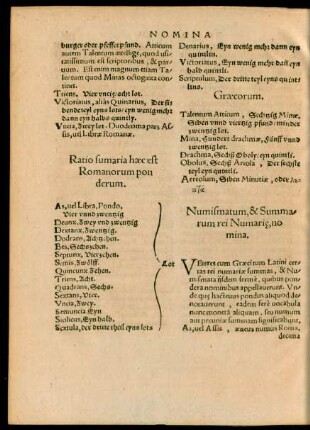 NOMINA
burger oder pfeffer pfund. Atticum
autem Talentum intellige, quod usi-
tatissimum est scriptoribus, & par-
uum. Est enim magnum etiam Ta-
lentum quod Minas octoginta con-
tinet.
Triens, Vier untzig acht lot.
Victoriatus, aliàs Quinarius, Der si-
bendeteyl eyns lots: ist eyn wenig mehr
dann eyn halbs quintly.
Vncia, Zwey lot. Duodecima pars As-
sis, uel Libræ Romanæ.
Ratio sumaria hæc est
Romanorum pon
derum.
As, uel Libra, Pondo,
Vier unnd zwentzig
Deunx, Zwey und zwentzig
Dextans, Zwentzig
Dodrans, Achtzehen
Bes, Sechzehen
Septunx, Viertzehen
Semis, Zwölff
Quincunx, Zehen
Triens, Acht
Quadrans, Sechs
Sextans, Vier
Vncia, Zwey
Semuncia Eyn
Sicilicus, Eyn halb
Sextula, der dritte theil eyns lots
Lot
Denarius, Eyn wenig mehr dann eyn
quintlin.
Victoriatus, Eyn wenig mehr dann eyn
halb quintli.
Scripulum, Der dritte teyl eyns quint-
lins.
Græcorum.
Talentum Atticum, Sechtzig Minæ,
Siben und viertzig pfund minder
zwentzig lot.
Mina, Hundert drachmæ, Fünff unnd
zwentzig lot.
Drachma, Sechß Oboly: eyn quintli.
Obolus, Sechß Areola, Der sechste
teyl eyns quintli.
Aereolum, Siben Minutiæ, oder
Numismatum, & Summa-
rum rei Numariæ, no
mina.
VEteres cum Græci tum Latini cer-
tas rei numariæ summas, & Nu-
mismata iisdem fermè, quibus pon-
dera nominibus appellauerunt. Vn-
de quos hactinus pondus aliquod de-
notauerunt, eadem uersa uice uocabula non solum est, nunc numos
aut pecuniæ summam significabunt,
As, uel Assis, æraeus numus Roma.
decima